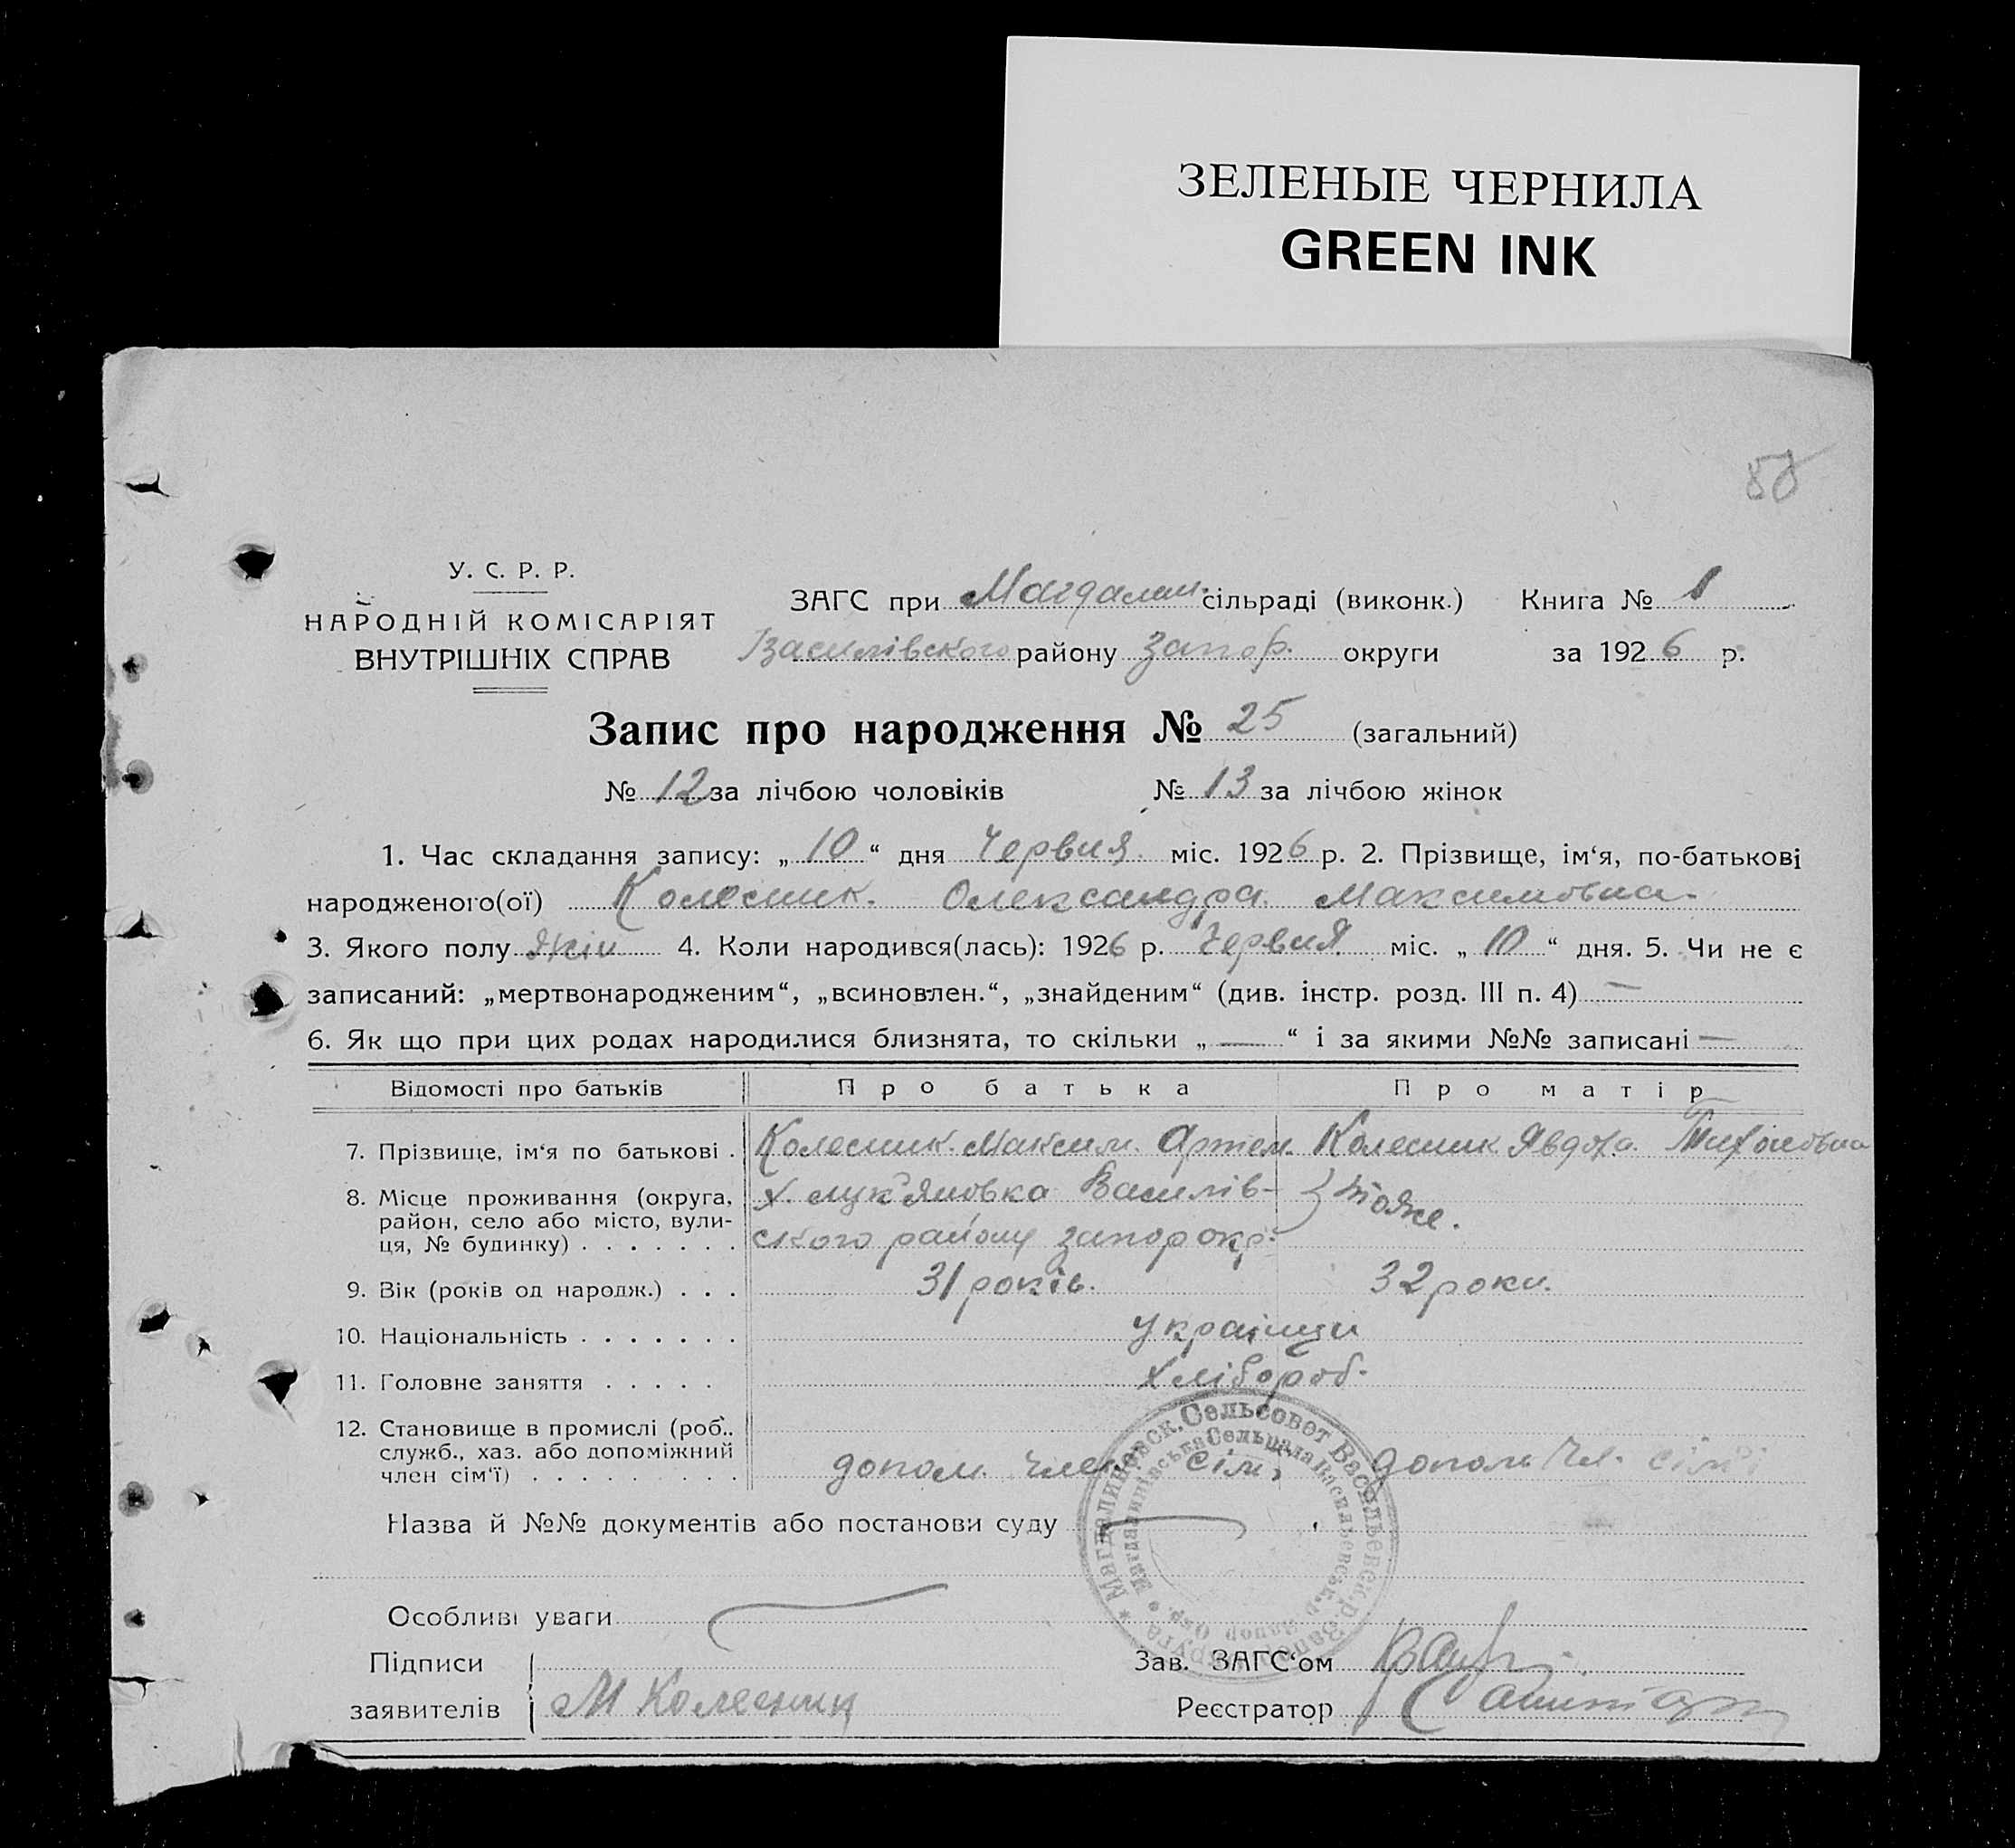 ЗЕЛЕНЫЕ ЧЕРНИЛА
GREEN INK
У. С. Р. Р.
НАРОДНІЙ КОМІСАРІЯТ
ВНУТРІШНІХ СПРАВ
ЗАГС при Магдалин. сільраді (виконк.) Книга № 1
Василівского району Запор. округи за 1926 р.
Запис про народження № 25 (загальний)
№ 12 за лічбою чоловіків № 13 за лічбою жінок
1. Час складання запису: „10“ дня Червня міс. 1926 р. 2. Прізвище, ім‘я, по-батькові
народженого(ої) Колесник. Олександра Максимовна.
3. Якого полу жін 4. Коли народився(лась): 1926 р. Червня міс. „10“ дня. 5. Чи не є
записаний: „мертвонародженим“, „всиновлен.“, „знайденим“ (див. інстр. розд. III п. 4) —
6. Як що при цих родах народилися близнята, то скільки „—“ і за якими №№ записані —
Відомості про батьків Про батька Про матір
7. Прізвище, ім‘я по батькові . Колесник Максим. Артем. Колесник Явдоха Тихоновна
8. Місце проживання (округа, х. Лук'яновка Василів-
район, село або місто, вули- Тоже.
ця, № будинку) . . . . . . . ского району запор окр.
9. Вік (років од народж.) . . . 31 років. 32 роки.
10. Національність . . . . . . . українци
11. Головне заняття . . . . . Хлібороб.
12. Становище в промислі (роб.,
служб., хаз. або допоміжний
член сім‘ї) . . . . . . . . . допом. член сім, допом чл. сім'ї
Магдалиновск. Сельсовет Васильевск. р. Запор. Округа
Назва й №№ документів або постанови суду
Особливі уваги
Підписи
заявителів М Колесник
Зав. ЗАГС‘ом
Реєстратор